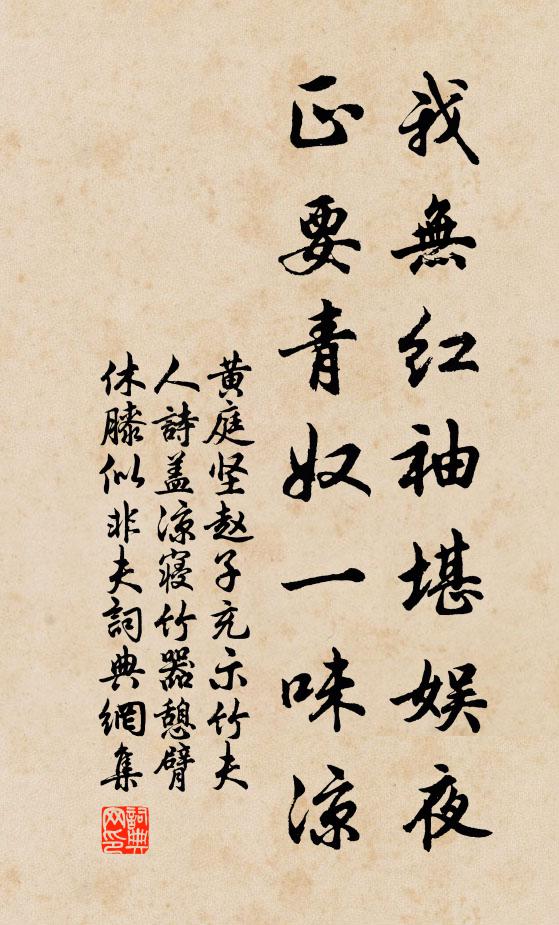 我無紅袖堪娱夜
正要青奴一味涼
黄庭坚赵子充示竹夫
人詩盖凉寝竹器憩臂
休膝似非夫詞典網集
詞典
网印